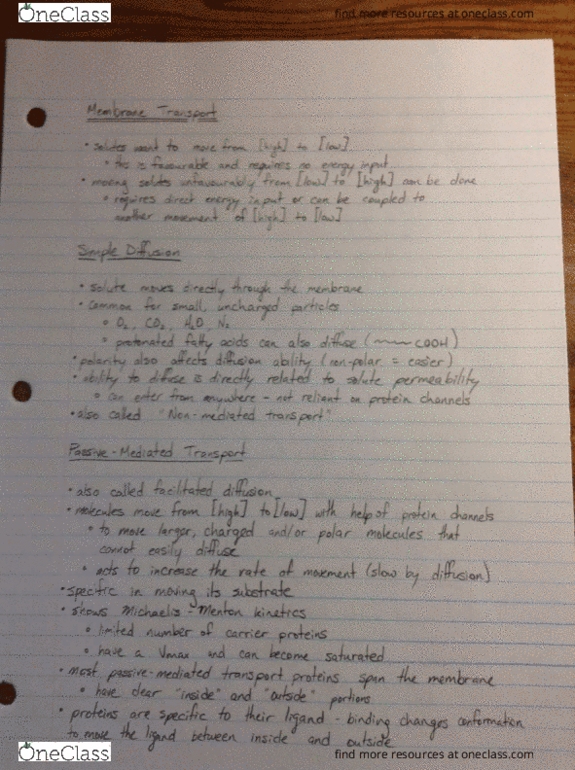 OneClass
find more resources at oneclass.com
Membrane Transport
• solutes want to move from [high] to [low]
• this is favourable and requires no energy input
• moving solutes unfavourably from [low] to [high] can be done
• requires direct energy input or can be coupled to
another movement of [high] to [low]
Simple Diffusion
• solute moves directly through the membrane
• common for small, uncharged particles
• O₂, CO₂, H₂O, N₂
• protonated fatty acids can also diffuse ( COOH)
• polarity also affects diffusion ability (non-polar = easier)
• ability to diffuse is directly related to solute permeability
• can enter from anywhere - not reliant on protein channels
• also called "Non-mediated transport"
Passive-Mediated Transport
• also called facilitated diffusion
• molecules move from [high] to [low] with help of protein channels
• to move larger, charged and/or polar molecules that
cannot easily diffuse
• acts to increase the rate of movement (slow by diffusion)
• specific in moving its substrate
• shows Michaelis-Menton kinetics
• limited number of carrier proteins
• have a Vmax and can become saturated
• most passive-mediated transport proteins span the membrane
• have clear "inside" and "outside" portions
• proteins are specific to their ligand - binding changes conformation
to move the ligand between inside and outside
OneClass
find more resources at oneclass.com